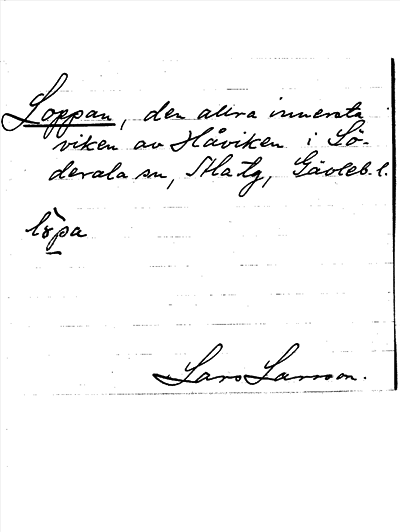 Loppan, den allra innersta
viken av Håviken i Sö-
derala sn, Ala tg, Gävleb. l.
lòpa
Lars Larsson.